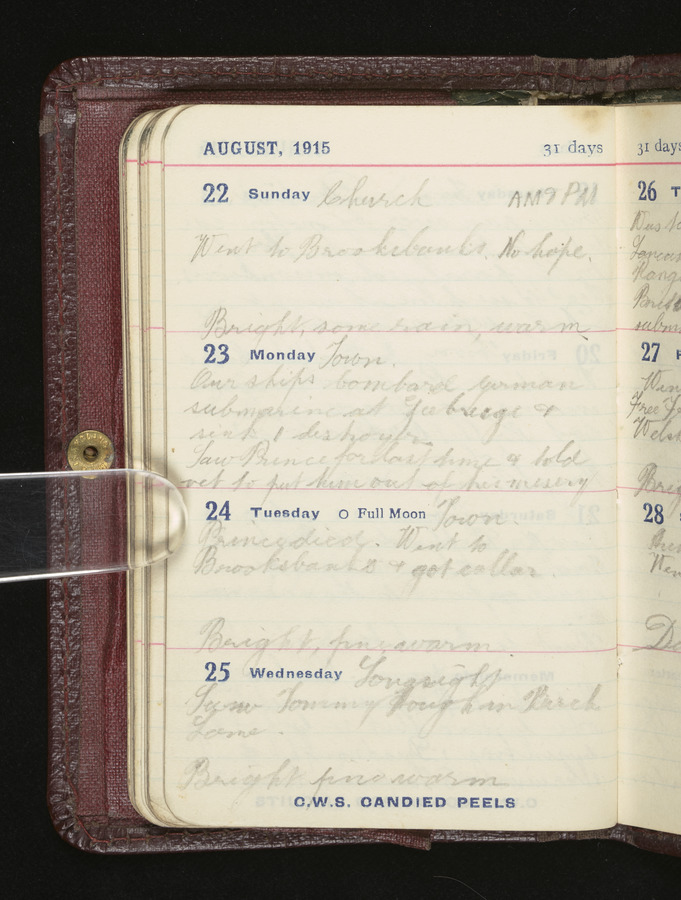 AUGUST, 1915 31 days
22 Sunday Church AM & PM
Went to Brooksbanks. No hope.
Bright, some rain, warm
23 Monday Town.
Our ships bombard german
submarine at Zeebruge &
sink 1 destroyer.
Saw Prince for last time & told
vet to put him out of his misery
24 Tuesday O Full Moon Town
Prince died. Went to
Brooksbanks & got collar.
Bright, fine, warm
25 Wednesday
Saw Tommy Gough in Park
Lane.
Bright fine warm
C.W.S. CANDIED PEELS
31 days
26 T
Was
27 F
Win
28 S